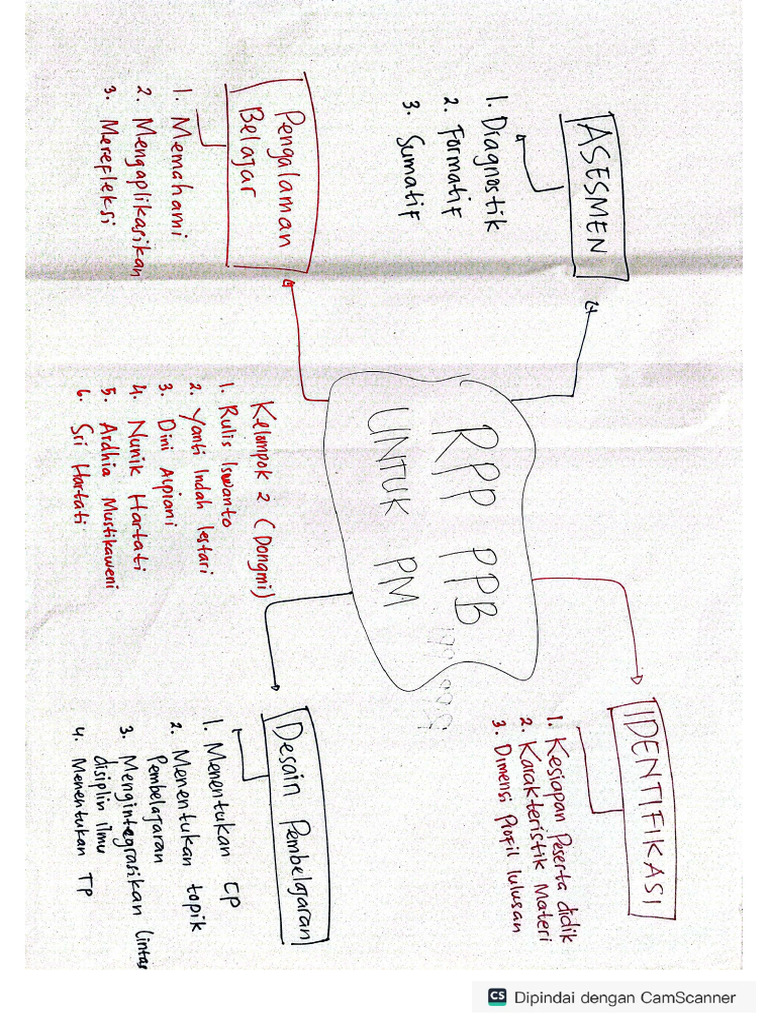 ASESMEN
1. Diagnostik
2. Formatif
3. Sumatif
IDENTIFIKASI
1. Kesiapan Peserta didik
2. Karakteristik Materi
3. Dimensi Profil lulusan
RPP PPB
UNTUK PM
Pengalaman
Belajar
1. Memahami
2. Mengaplikasikan
3. Merefleksi
Kelompok 2 (Dongmi)
1. Rulis Iswanto
2. Yanti Indah lestari
3. Dini Alpiani
4. Nunik Hartati
5. Ardhia Mustikaweni
6. Sri Hartati
Desain Pembelajaran
1. Menentukan CP
2. Menentukan topik
Pembelajaran
3. Mengintegrasikan lintas
disiplin ilmu
4. Menentukan TP
CS Dipindai dengan CamScanner